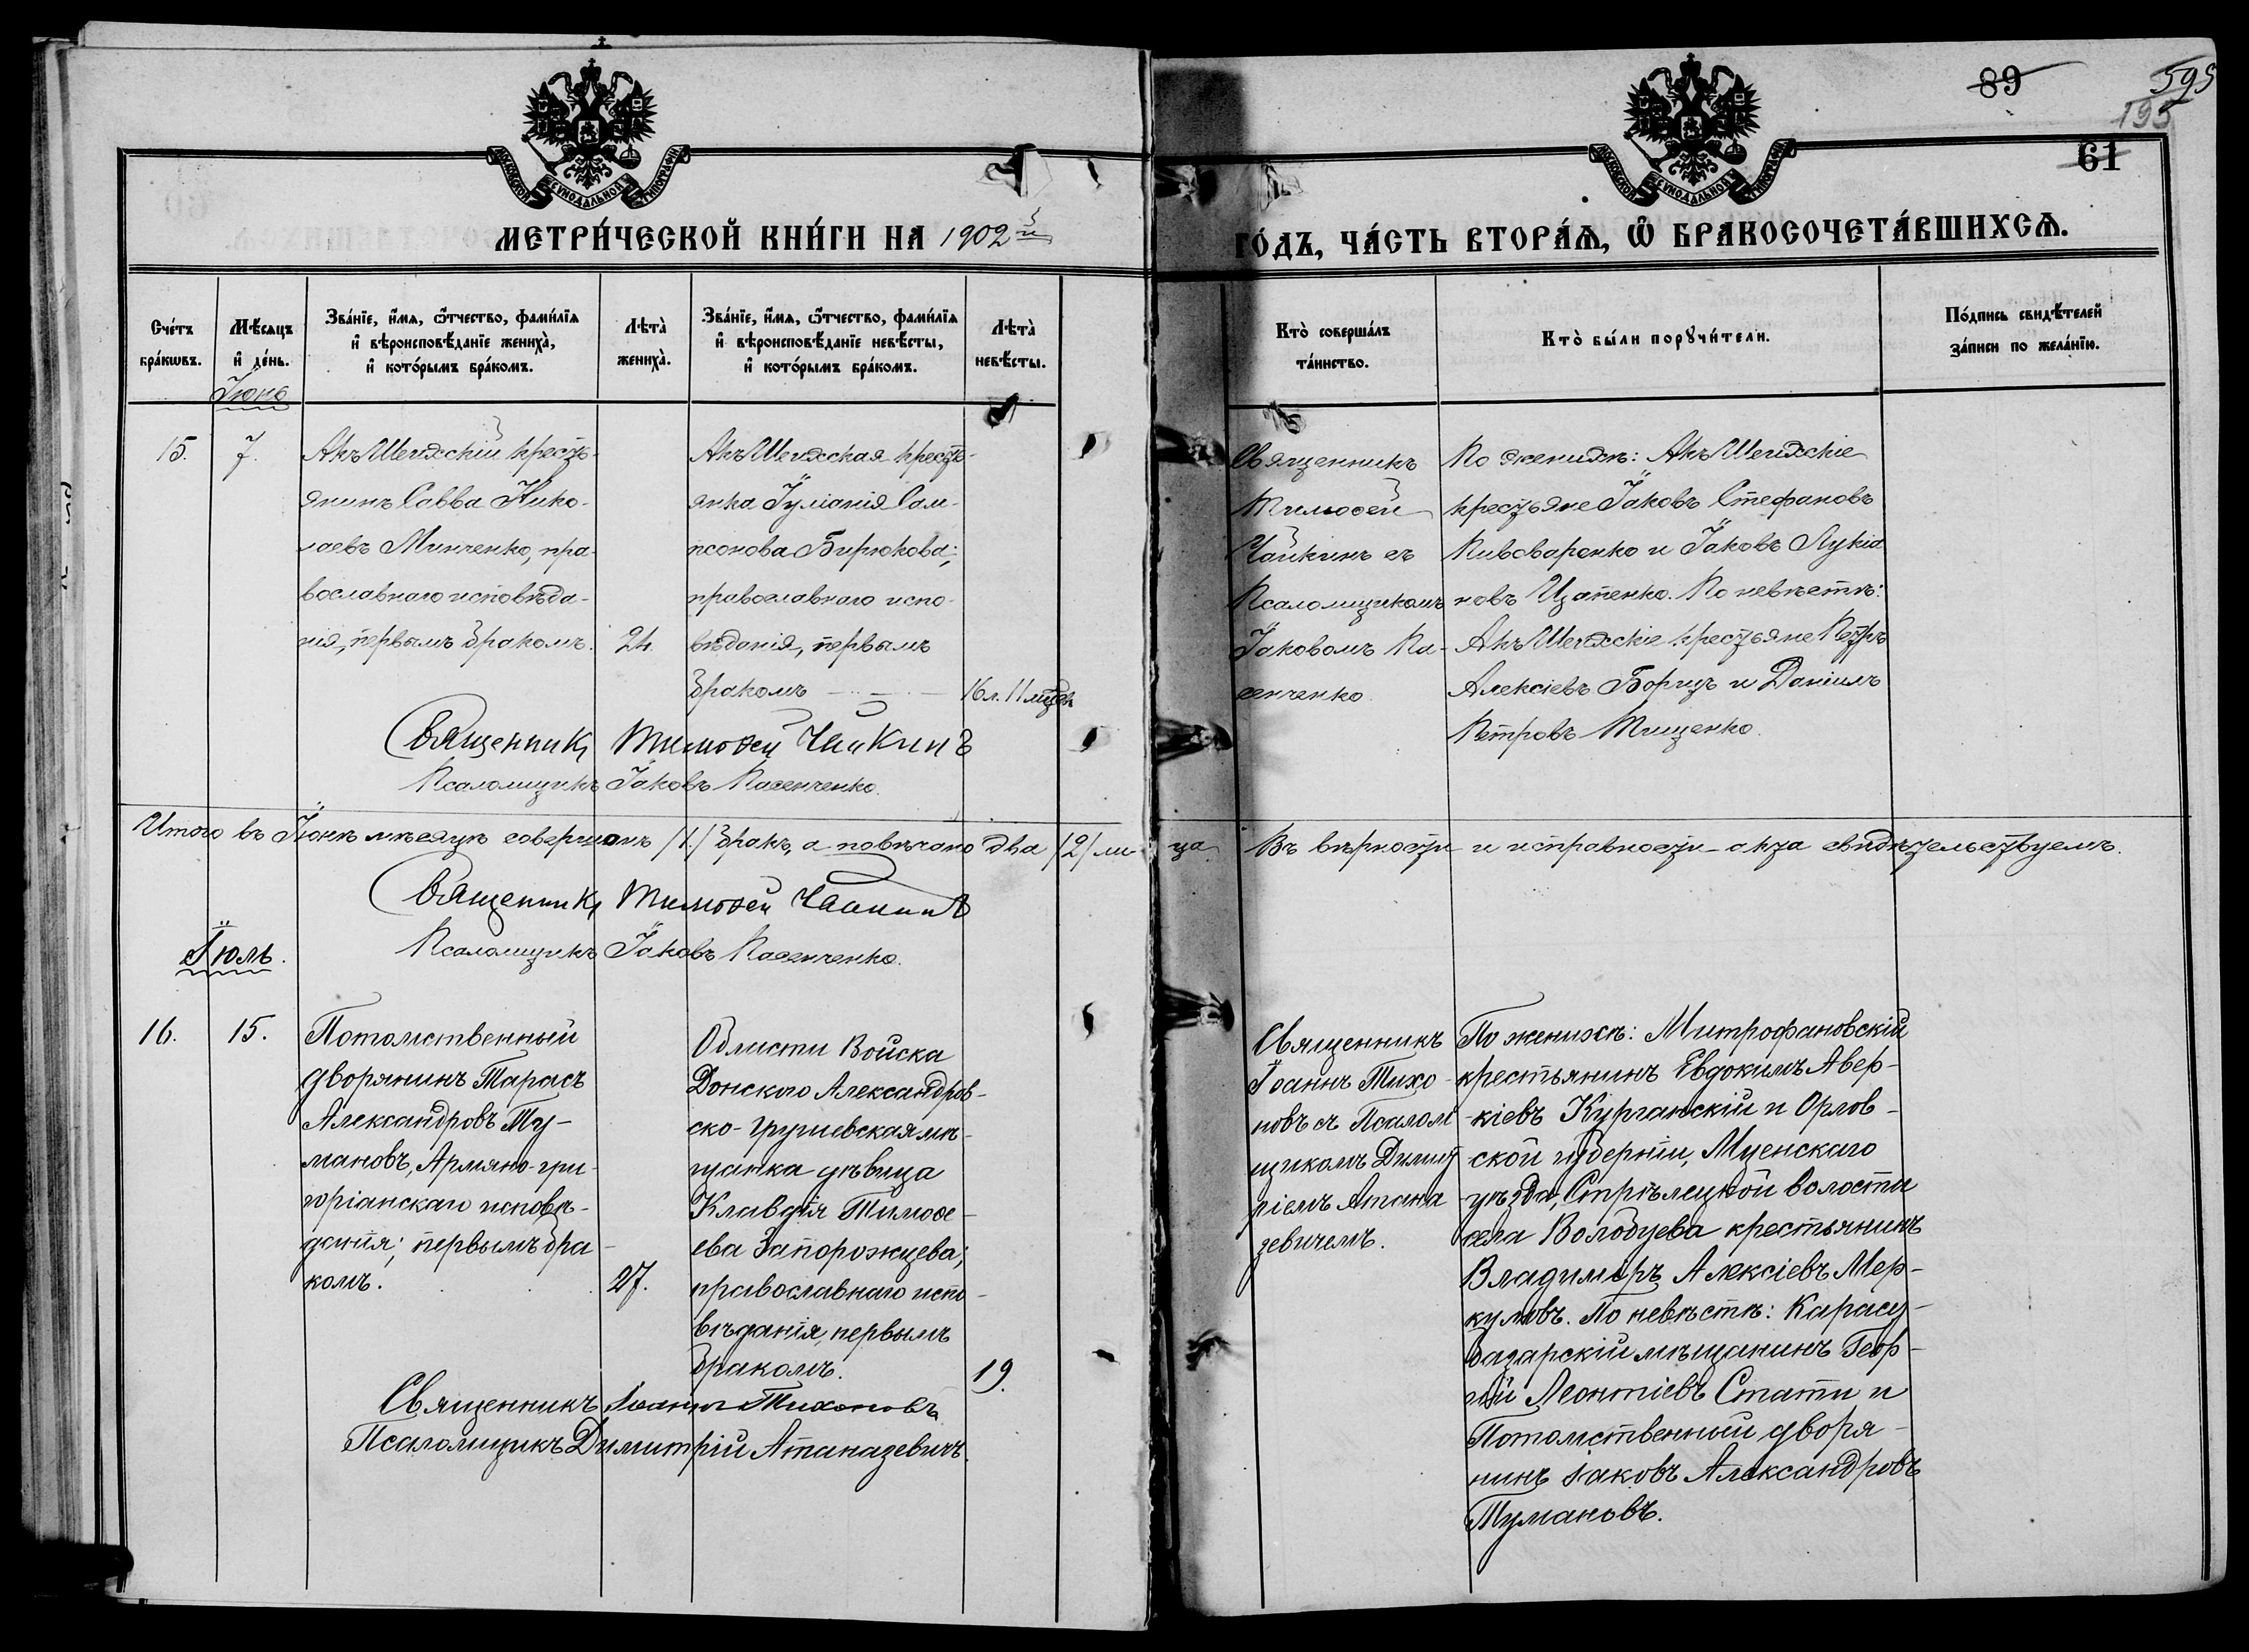 89
595
195
61
МОСКОВСКОЙ СѴНОДАЛЬНОЙ ТИПОГРАФІИ
МОСКОВСКОЙ СѴНОДАЛЬНОЙ ТИПОГРАФІИ
МЕТРИ́ЧЕСКОЙ КНИ́ГИ НА 1902й
ГО́ДЪ, ЧА́СТЬ ВТОРА́Ѧ, Ѽ БРАКОСОЧЕТА́ВШИХСѦ.
Сче́тъ
бра́кѡвъ.
Мѣ́сяцъ
и҆ де́нь.
Зва́нїе, и҆́мѧ, ѻ҆́тчество, фами́лїѧ
и҆ вѣроисповѣ́данїе женихà,
и҆ кото́рымъ бра́комъ.
Лѣ́тà
женихà.
Зва́нїе, и҆́мѧ, ѻ҆́тчество, фами́лїѧ
и҆ вѣроисповѣ́данїе невѣ́сты,
и҆ кото́рымъ бра́комъ.
Лѣ́тà
невѣ́сты.
Ктò соверша́лъ
та́инство.
Ктò бы́ли порꙋчи́тели.
По́дпись свидѣ́телей
за́писи по жела́нїю.
Іюнь
15.
7.
Акъ Шеихскій кресть-
янинъ Савва Нико-
лаевъ Минченко, пра-
вославнаго исповѣда-
нія, первымъ бракомъ.
24.
Акъ Шеихская кресть-
янка Іуліанія Сам-
псонова Бирюкова;
православнаго испо-
вѣданія, первымъ
бракомъ
16 л. 11 мцевъ
Священникъ
Тимоѳей
Чайкинъ съ
Псаломщикомъ
Іаковомъ Па-
сенченко.
По женихѣ: Акъ Шеихскіе
крестьяне Іаковъ Стефановъ
Пивоваренко и Іаковъ Лукіа
новъ Цапенко. По невѣстѣ:
Акъ Шеихскіе крестьяне Петръ
Алексіевъ Борицъ и Даніилъ
Петровъ Тищенко.
Священникъ Тимоѳей Чайкинъ
Псаломщикъ Іаковъ Пасенченко.
Итого въ Іюнѣ мѣсяцѣ совершонъ /1./ бракъ, а повѣнчано два /2/ ли-ца. Въ вѣрности и исправности акта свидѣтельствуемъ.
Священникъ Тимоѳей Чайкинъ
Псаломщикъ Іаковъ Пасенченко.
Іюль.
16.
15.
Потомственный
дворянинъ Тарасъ
Александровъ Ту-
мановъ, Армяно-гри-
горіанскаго исповѣ-
данія; первымъ бра-
комъ.
27.
Области Войска
Донского Александров-
ско-Грушевская мѣ-
щанка дѣвица
Клавдія Тимоѳе-
ева Запорожцева;
православнаго испо-
вѣданія, первымъ
бракомъ.
19.
Священникъ
Іоаннъ Тихо-
новъ съ Псалом
щикомъ Димит
ріемъ Атана
зевичемъ.
По женихѣ: Митрофановскій
крестьянинъ Евдокимъ Авер-
кіевъ Курганскій и Орлов-
ской губерніи, Мценскаго
уѣзда, Стрѣлецкой волости
села Володуева крестьянинъ
Владиміръ Алексіевъ Мер-
куловъ. По невѣстѣ: Карасу-
базарскій мѣщанинъ Геор-
гій Леонтіевъ Стати и
Потомственный дворя-
нинъ Іаковъ Александровъ
Тумановъ.
Священникъ Іоаннъ Тихоновъ
Псаломщикъ Димитрій Атаназевичъ.